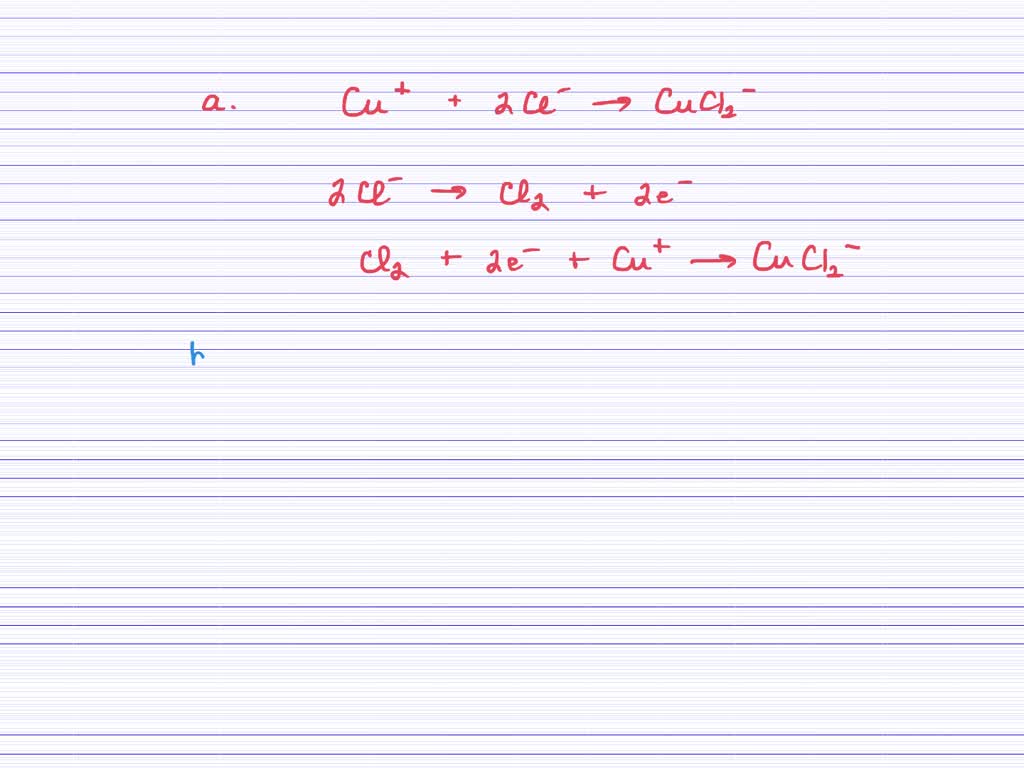 a. Cu⁺ + 2Cl⁻ → CuCl₂⁻
2Cl⁻ → Cl₂ + 2e⁻
Cl₂ + 2e⁻ + Cu⁺ → CuCl₂⁻
h